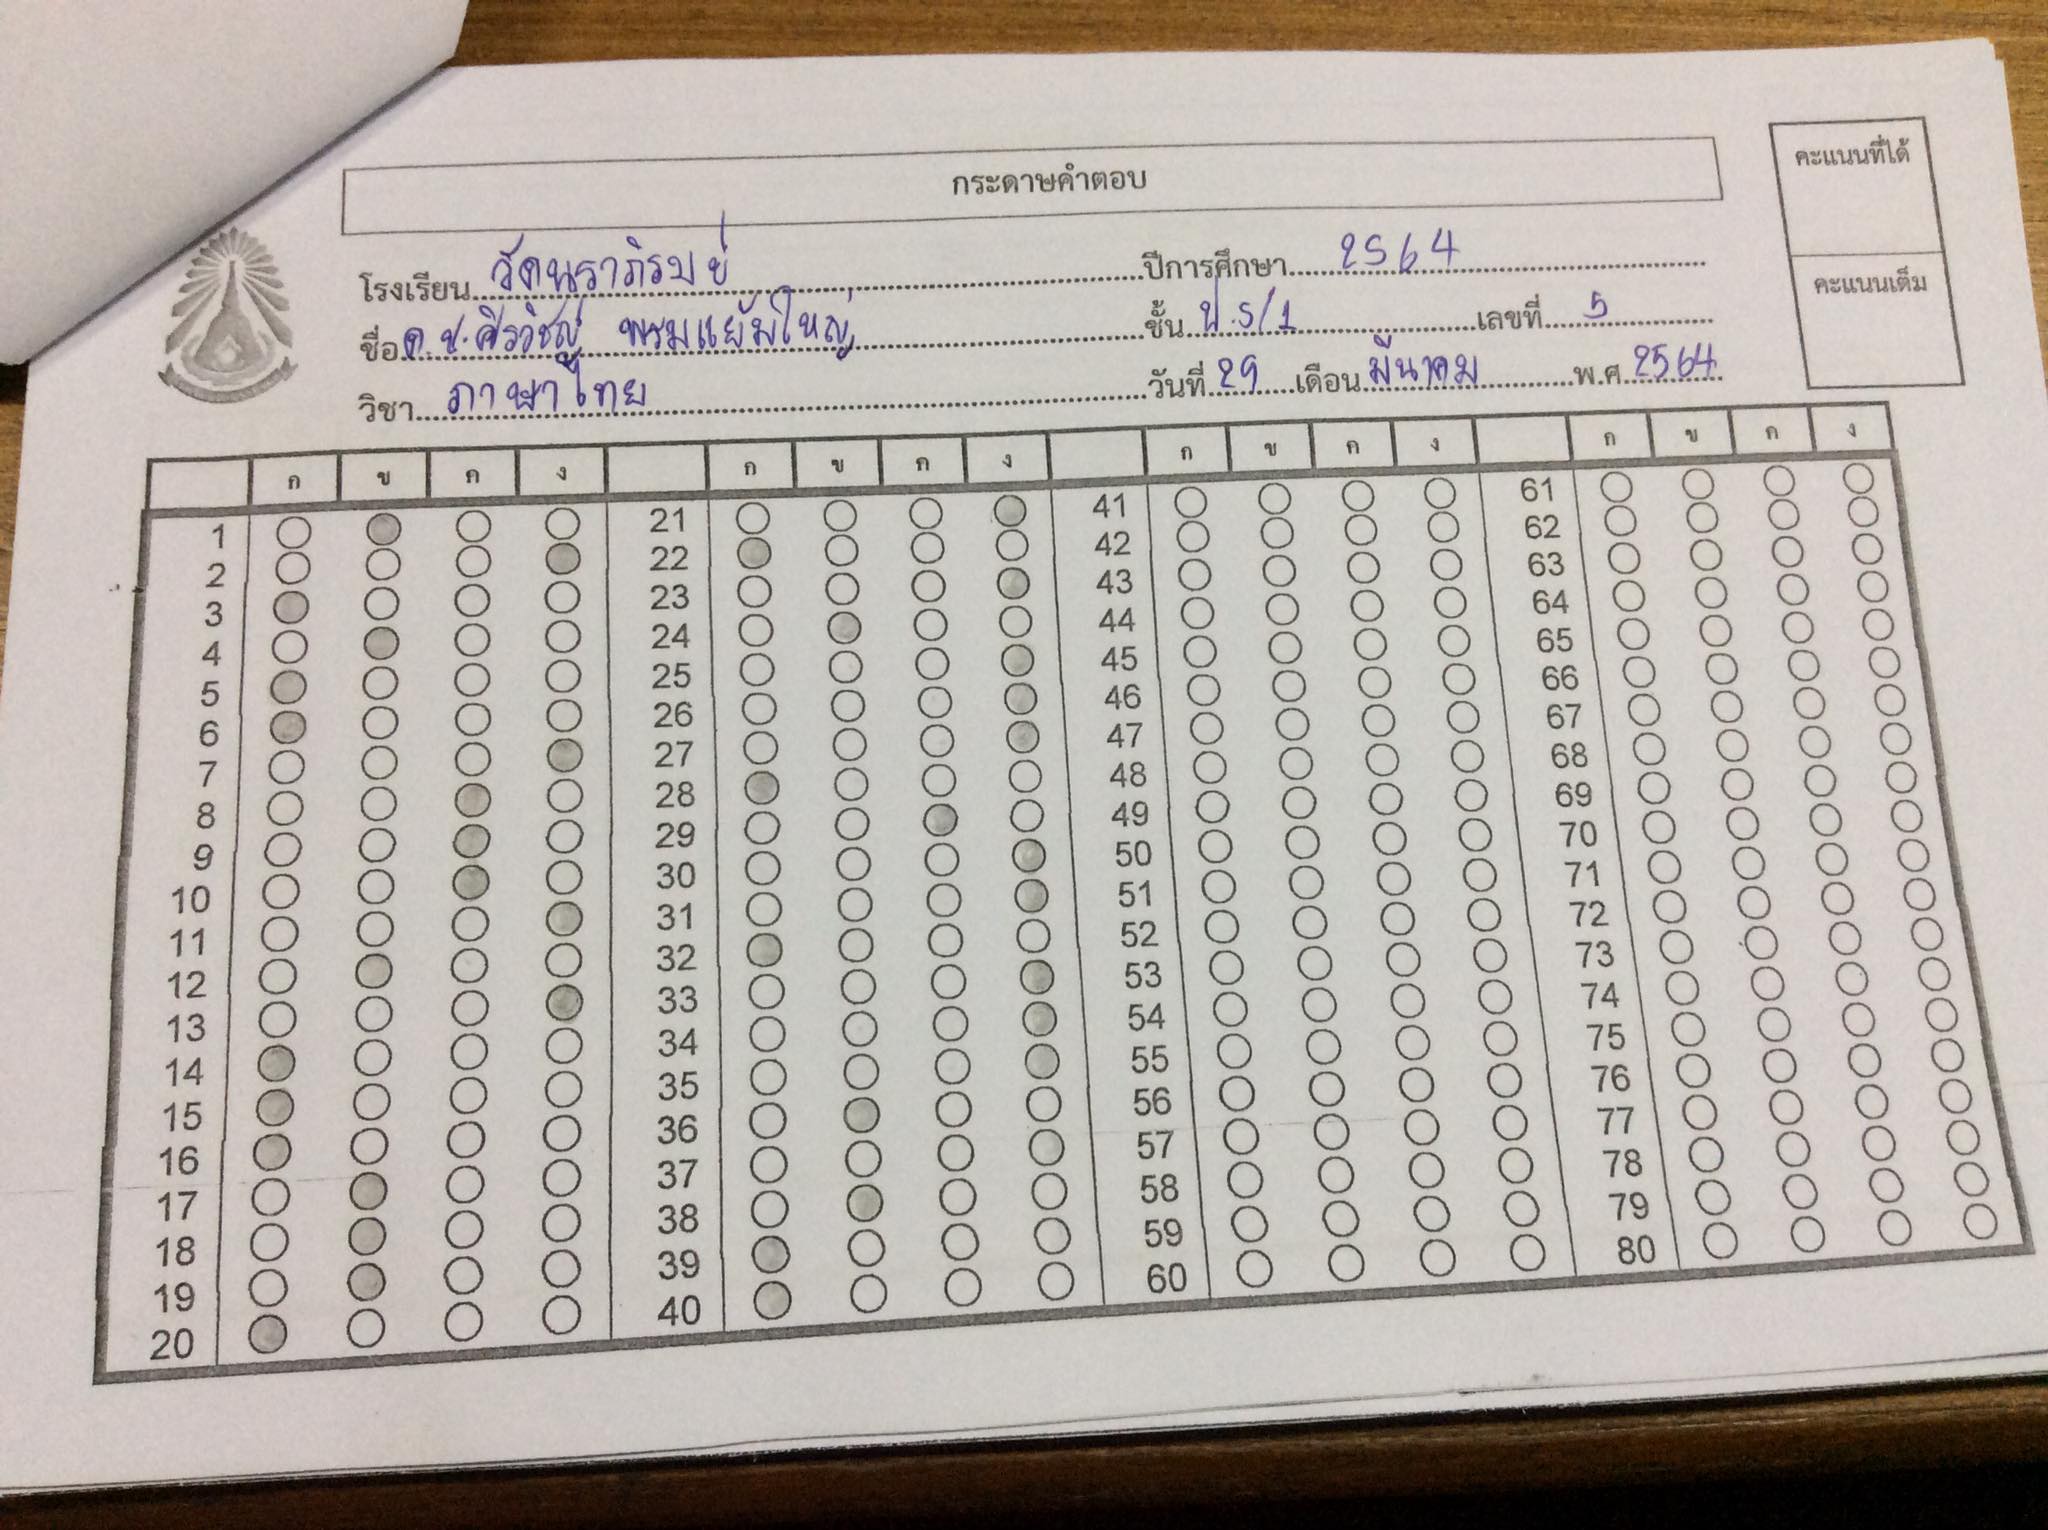 กระดาษคำตอบ
คะแนนที่ได้
คะแนนเต็ม
โรงเรียน วัดนราภิรมย์ ปีการศึกษา 2564
ชื่อ ด.ช.ศิรวิชญ์ พรมแย้มใหญ่ ชั้น ป.5/1 เลขที่ 5
วิชา ภาษาไทย วันที่ 29 เดือน มีนาคม พ.ศ 2564
ก ข ค ง ก ข ค ง ก ข ค ง ก ข ค ง
1 21 41 61
2 22 42 62
3 23 43 63
4 24 44 64
5 25 45 65
6 26 46 66
7 27 47 67
8 28 48 68
9 29 49 69
10 30 50 70
11 31 51 71
12 32 52 72
13 33 53 73
14 34 54 74
15 35 55 75
16 36 56 76
17 37 57 77
18 38 58 78
19 39 59 79
20 40 60 80